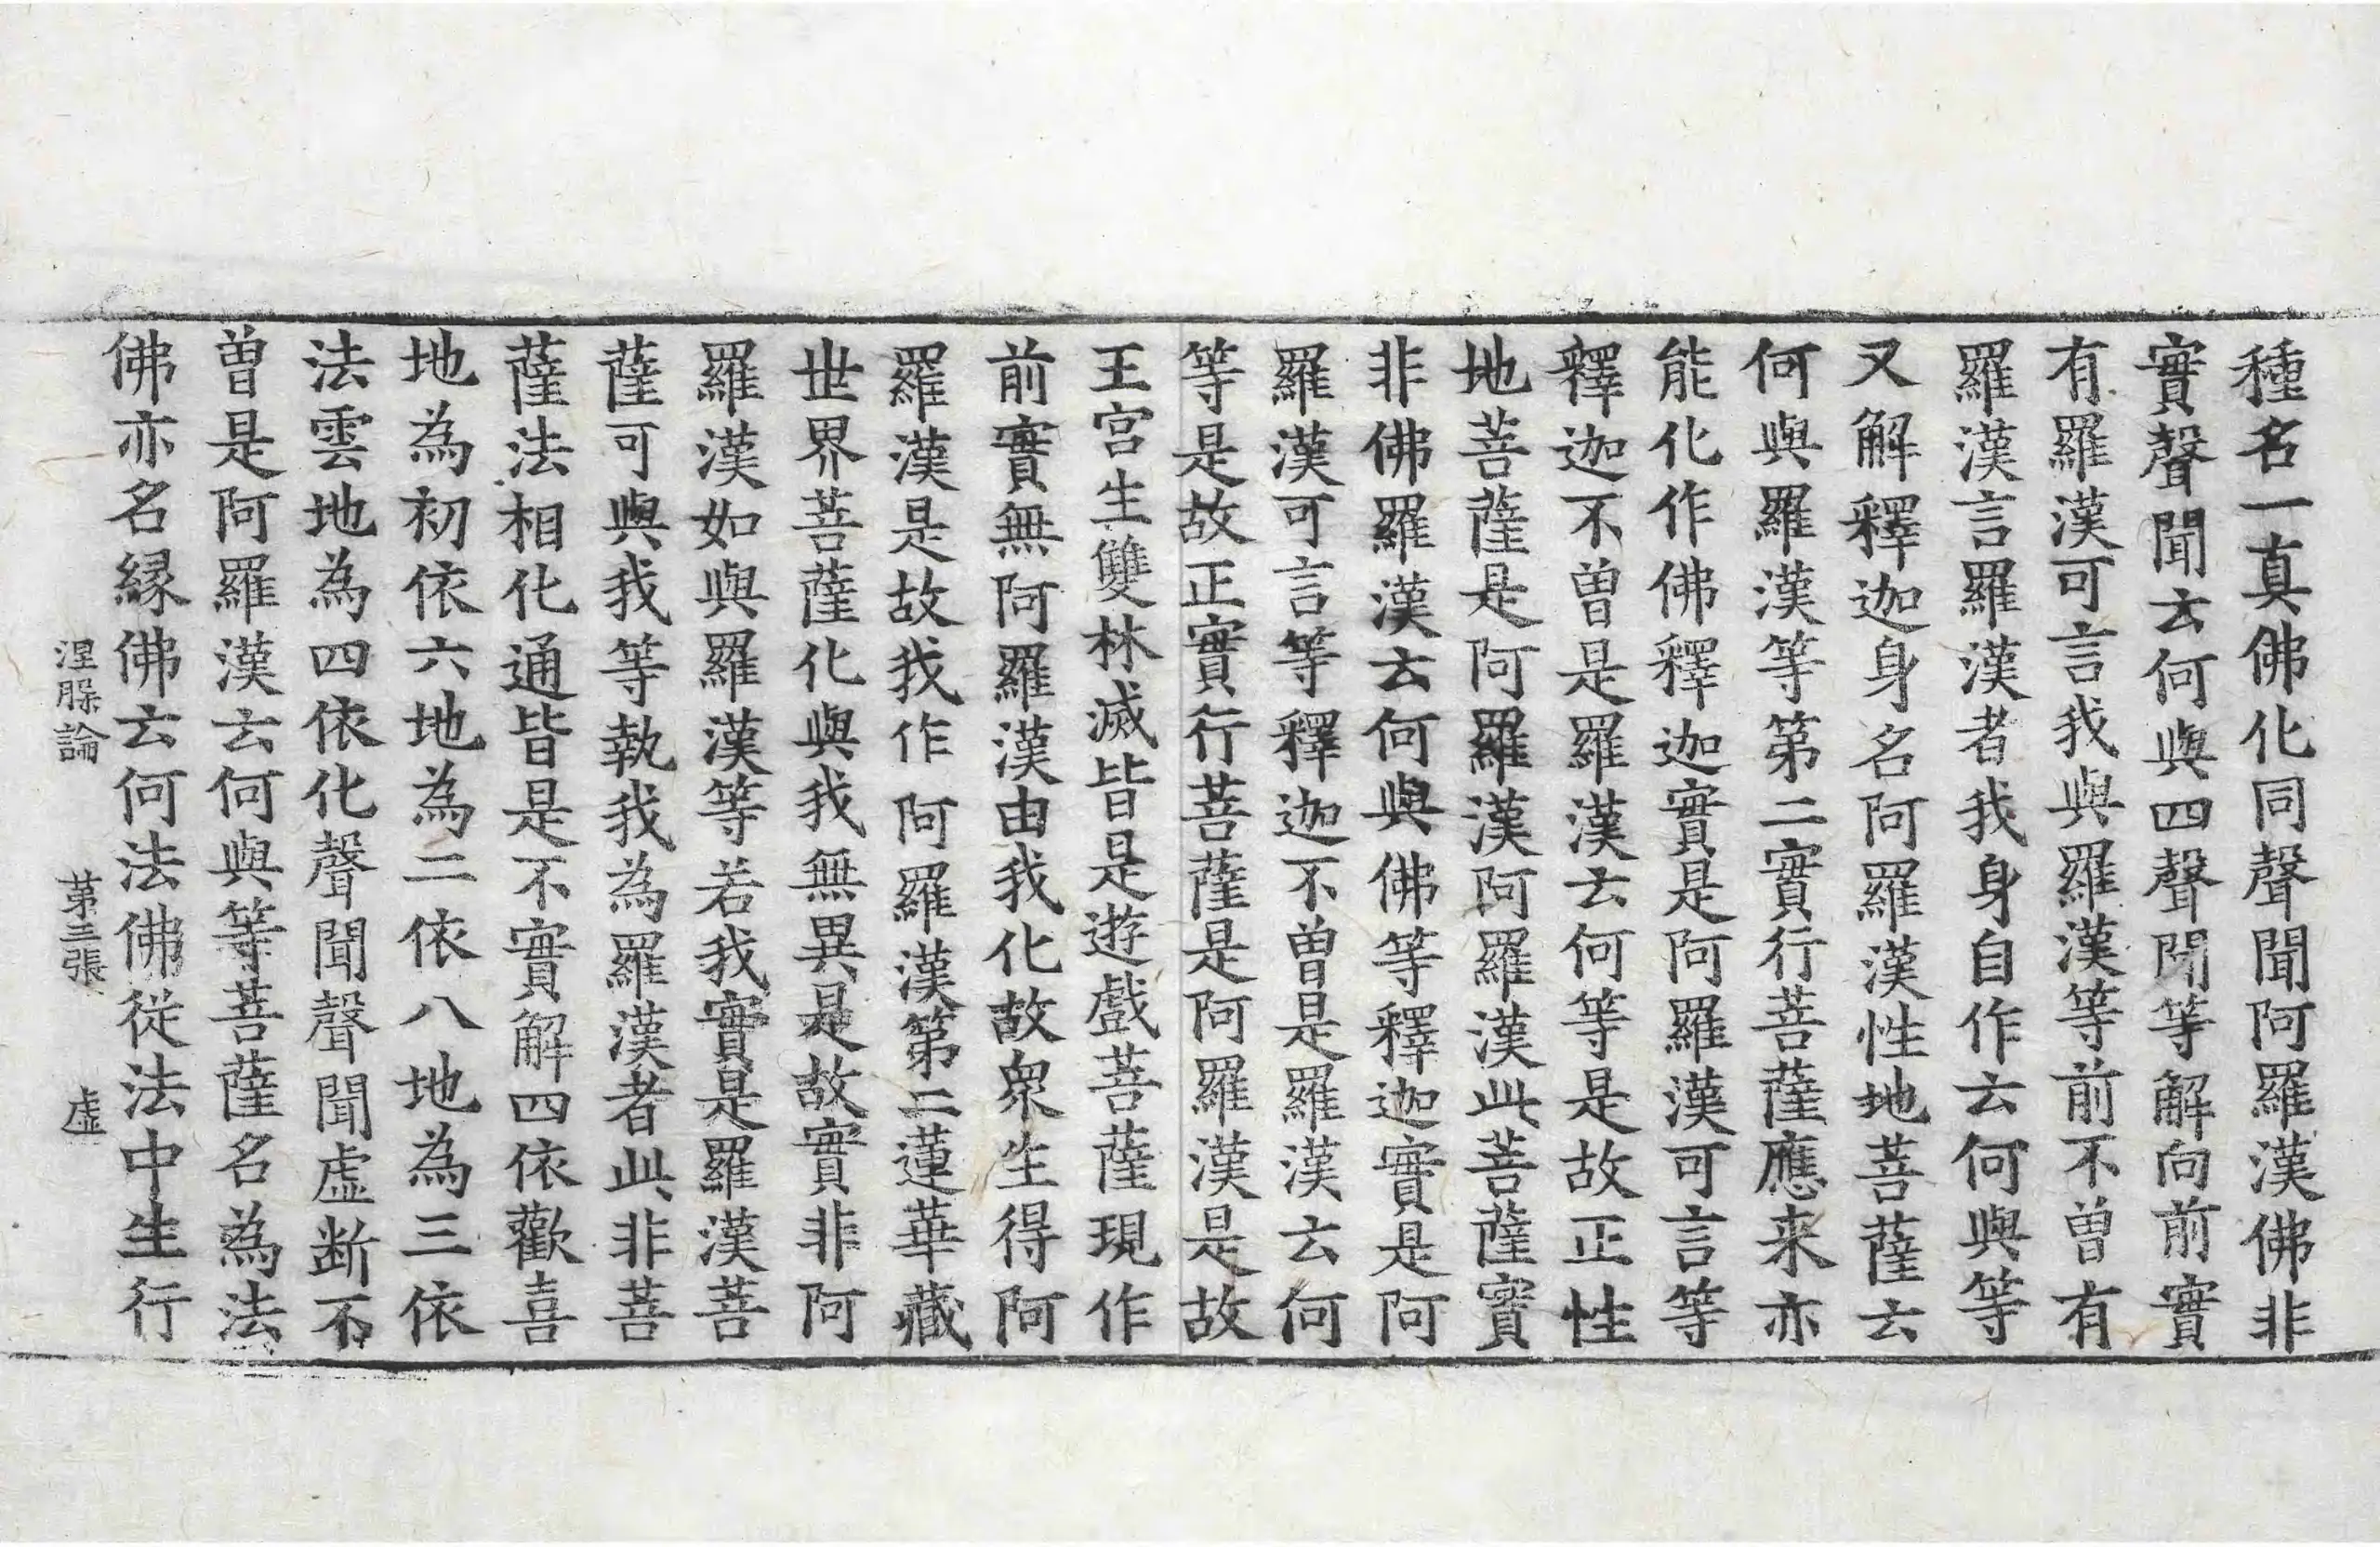 種名一真佛化同聲聞阿羅漢佛非
實聲聞云何與四聲聞等解向前實
有羅漢可言我與羅漢等前不曽有
羅漢言羅漢者我身自作云何與等
又解釋迦身名阿羅漢性地菩薩云
何與羅漢等第二實行菩薩應来亦
能化作佛釋迦實是阿羅漢可言等
釋迦不曽是羅漢云何等是故正性
地菩薩是阿羅漢阿羅漢此菩薩實
非佛羅漢云何與佛等釋迦實是阿
羅漢可言等釋迦不曽是羅漢云何
等是故正實行菩薩是阿羅漢是故
王宮生雙林滅皆是遊戲菩薩現作
前實無阿羅漢由我化故衆生得阿
羅漢是故我作阿羅漢第二蓮華藏
世界菩薩化與我無異是故實非阿
羅漢如與羅漢等若我實是羅漢菩
薩可與我等執我為羅漢者此非菩
薩法相化通皆是不實解四依歡喜
地為初依六地為二依八地為三依
法雲地為四依化聲聞聲聞虛断不
曽是阿羅漢云何與等菩薩名為法
佛亦名縁佛云何法佛從法中生行
涅槃論 第三張 虛